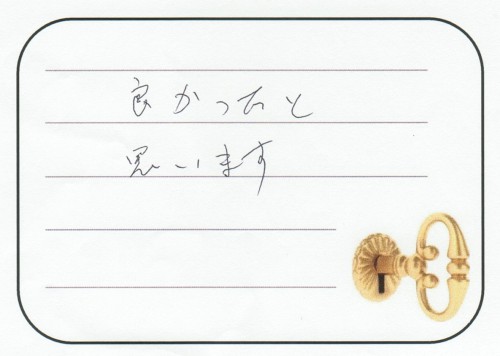 良かったと
思います